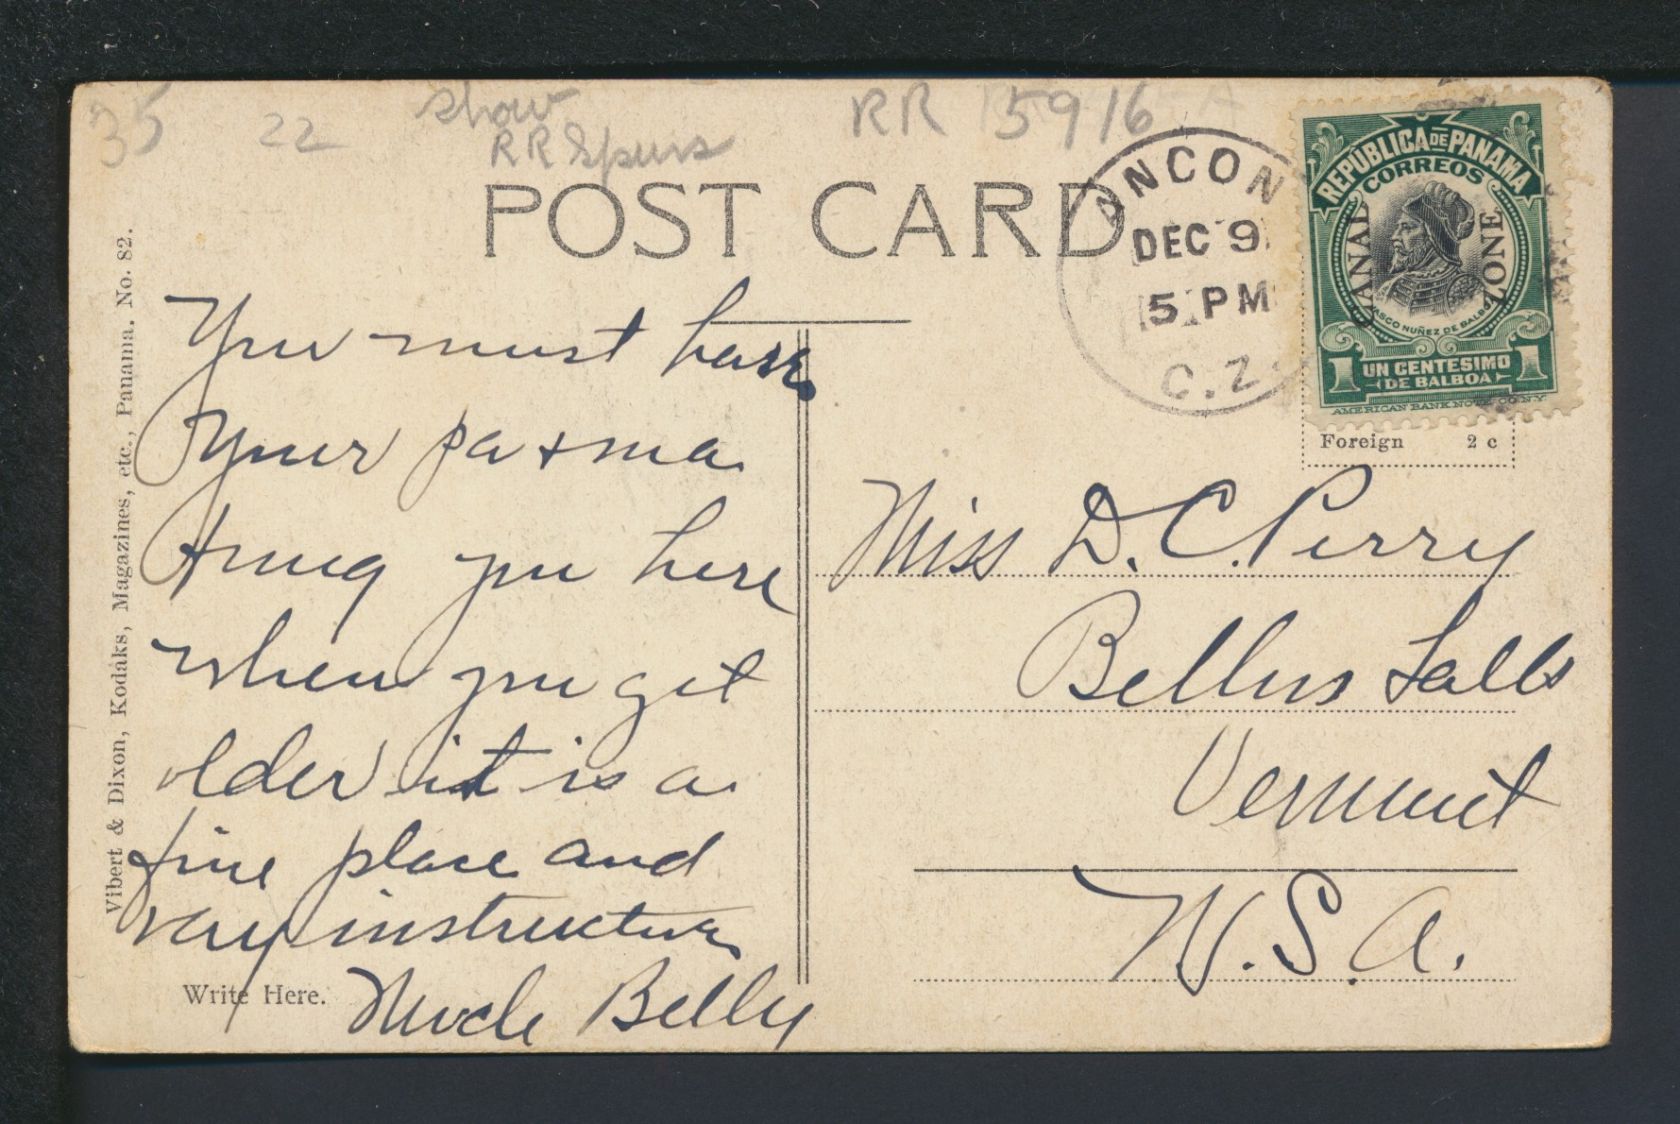 35
22
show
RR Spurs
RR 15916
POST CARD
ANCON
DEC 9
5 PM
C.Z.
REPUBLICA DE PANAMA
CORREOS
CANAL ZONE
VASCO NUÑEZ DE BALBOA
1 UN CENTESIMO 1
(DE BALBOA)
AMERICAN BANK NOTE CO. N.Y.
Foreign 2 c
Vibert & Dixon, Kodaks, Magazines, etc., Panama. No. 82.
You must have
your pa + ma
bring you here
when you get
older it is a
fine place and
very instructive
Uncle Billy
Write Here.
Miss D. C. Perry
Bellus Falls
Vermont
U. S. A.